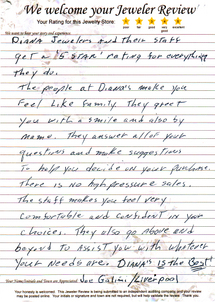 We welcome your Jeweler Review
Your Rating for this Jewelry Store:
poor fair good very good excellent
We want to hear your story and experience.
Diana Jewelers and their staff
get a "5 STAR" rating for everything
they do.
The people at Diana's make you
Feel like family. They greet
you with a smile and also by
name. They answer all of your
questions and make suggestions
to help you decide on your purchase.
There is no high pressure sales.
The staff makes you feel very
comfortable and confident in your
choices. They also go above and
beyond to assist you with whatever
your needs are. Diana's is the Best!
Your Name/Initials and Town are Appreciated: Joe Gatini/Liverpool
Your honesty is welcomed. This Jeweler Review is being submitted to an independent auditing company and your review
may be posted online. Your initials or signature and town are not required, but will help validate the review. Thank you.